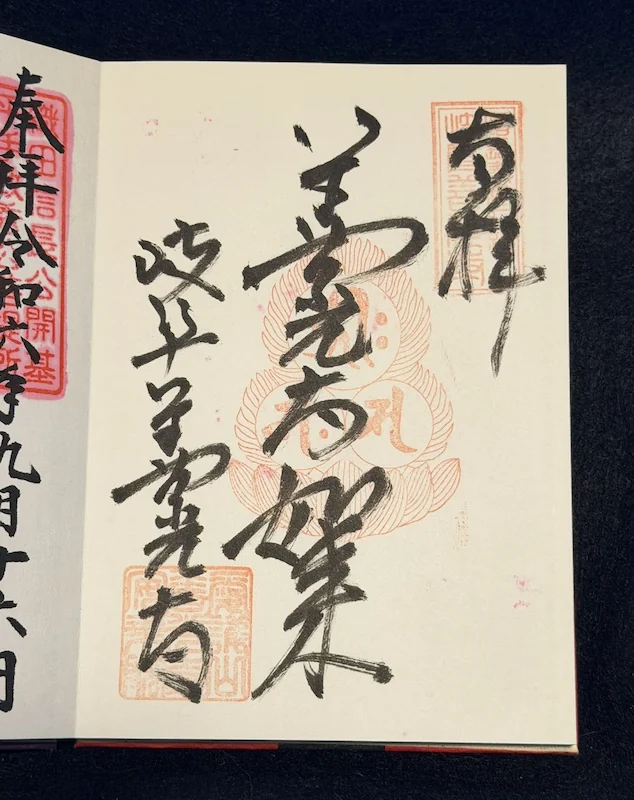 奉拝
善光寺如来
岐阜善光寺
織田信長公開基
奉拝令和六年九月十六日